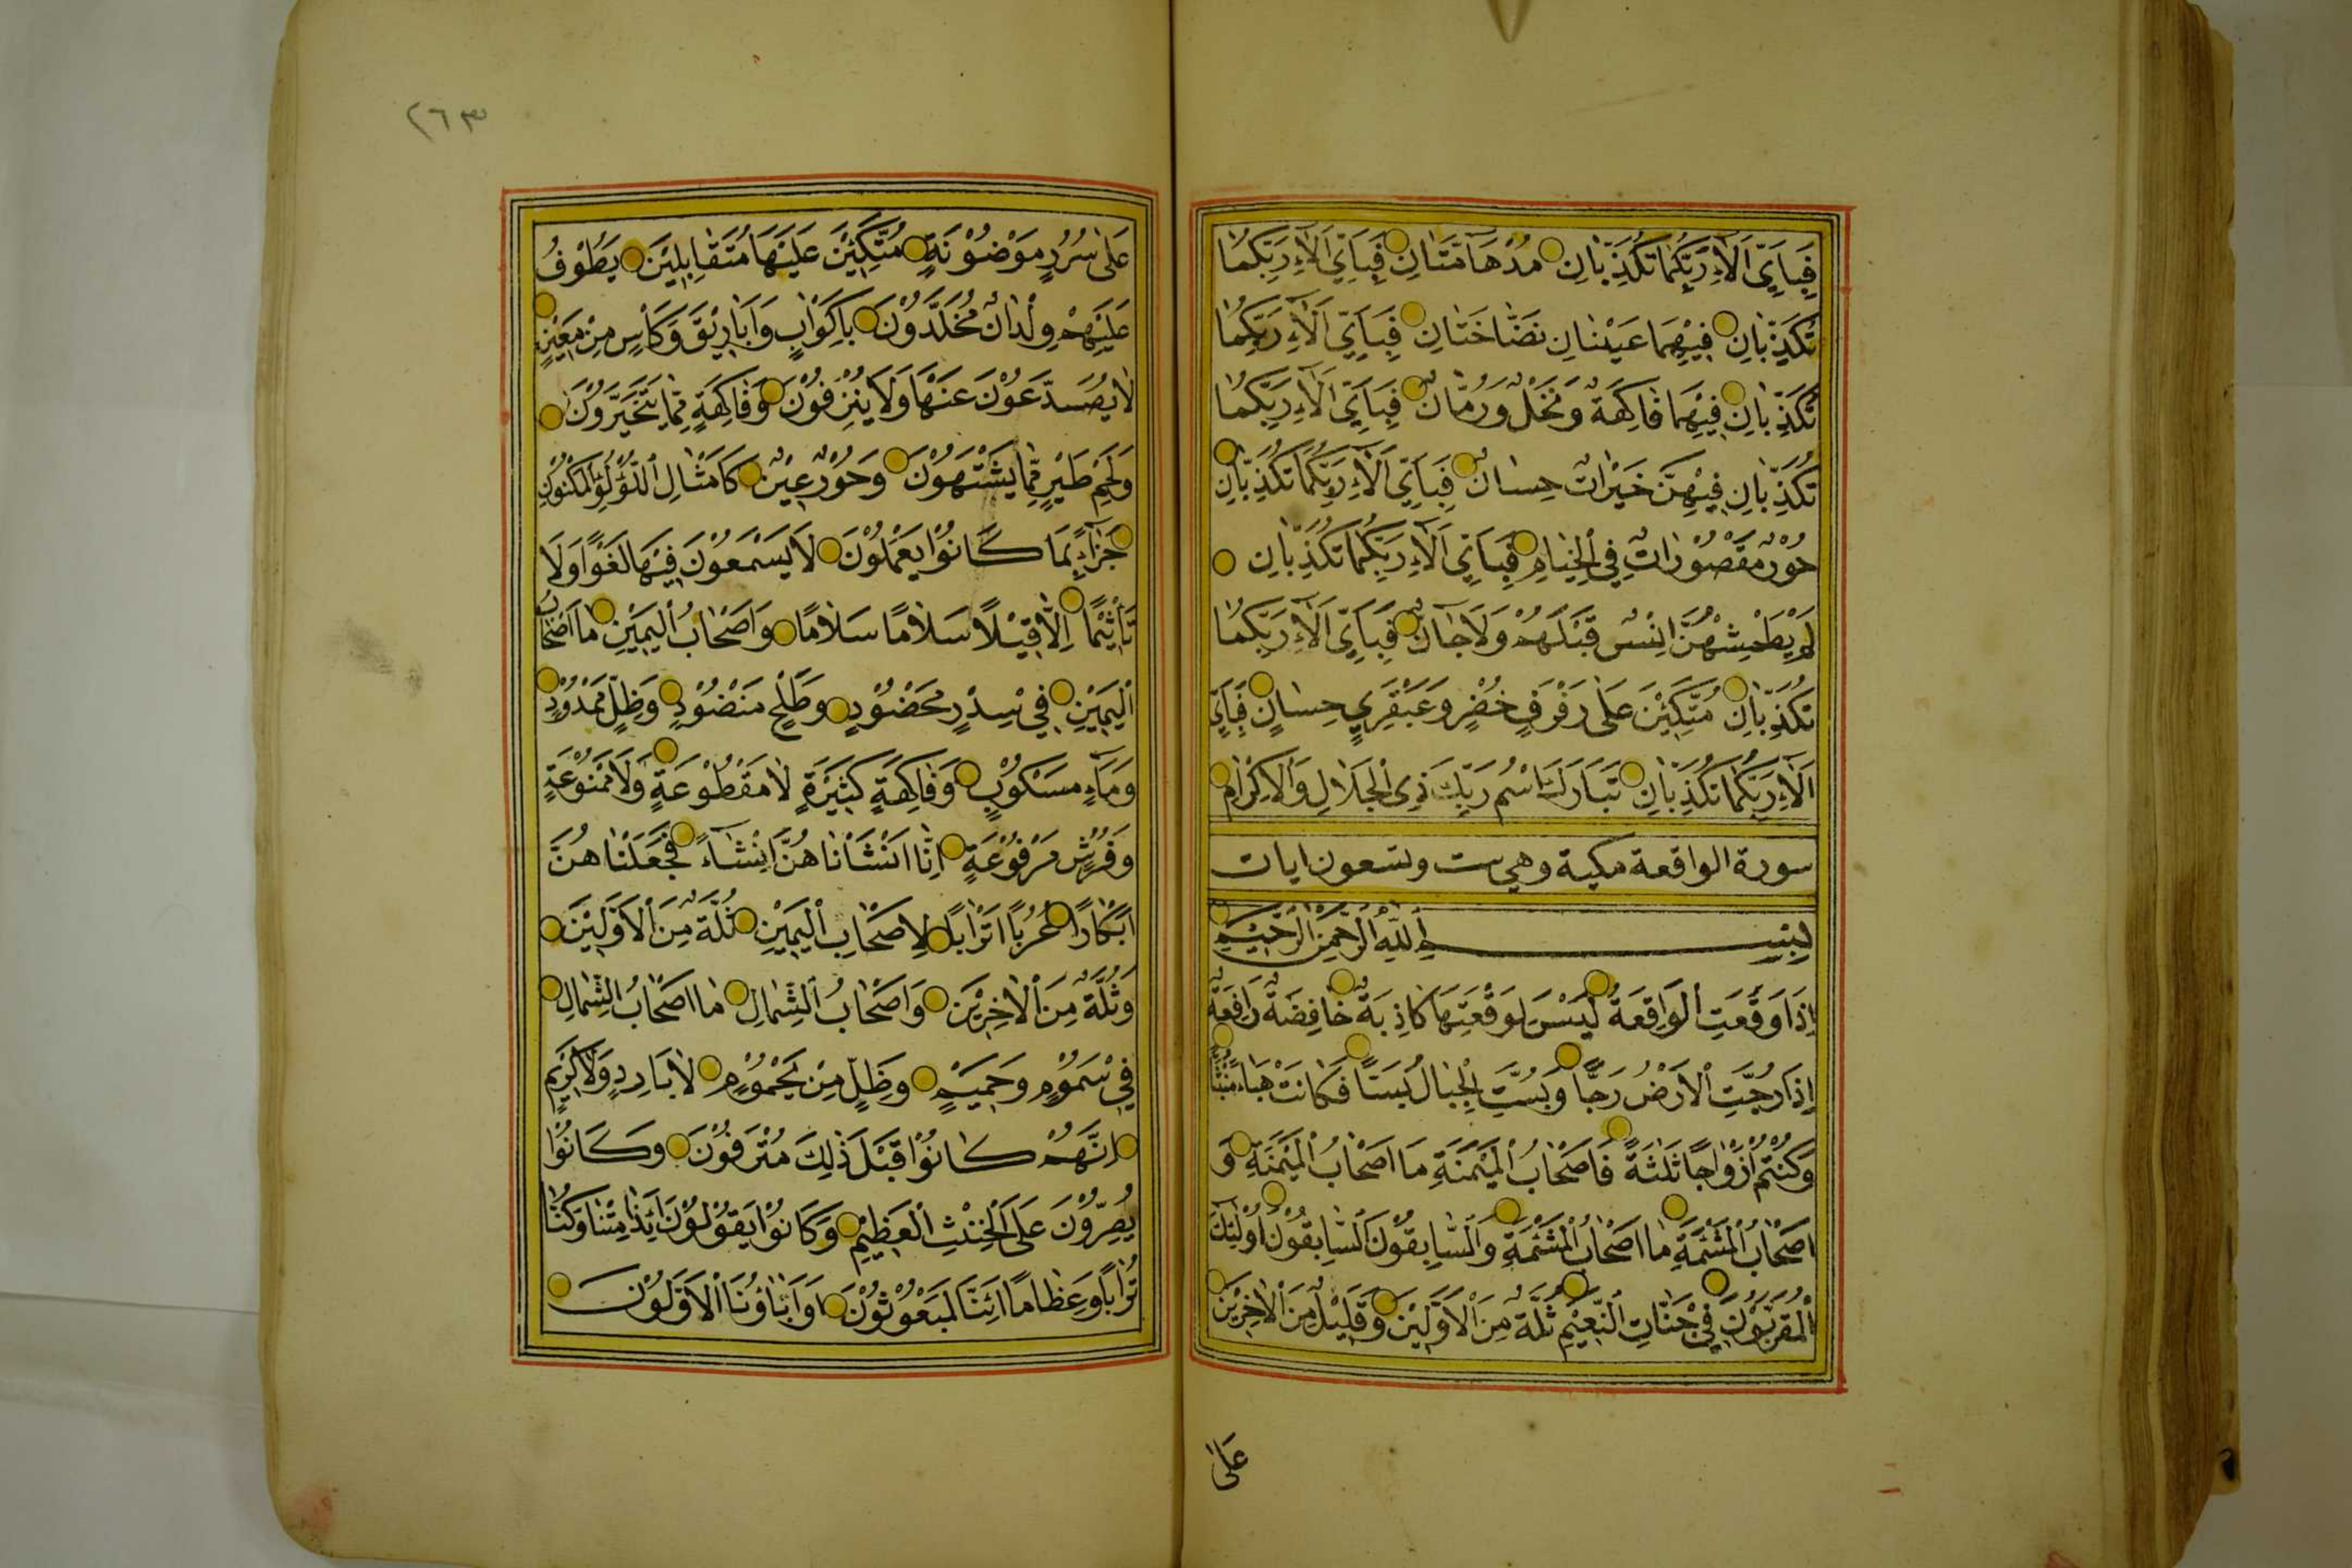 فَبِاَيِّ اٰلَاۤءِ رَبِّكُمَا تُكَذِّبَانِ مُدْهَاۤمَّتَانِ فَبِاَيِّ اٰلَاۤءِ رَبِّكُمَا
تُكَذِّبَانِ فِيْهِمَا عَيْنَانِ نَضَّاخَتَانِ فَبِاَيِّ اٰلَاۤءِ رَبِّكُمَا
تُكَذِّبَانِ فِيْهِمَا فَاكِهَةٌ وَنَخْلٌ وَرُمَّانٌ فَبِاَيِّ اٰلَاۤءِ رَبِّكُمَا
تُكَذِّبَانِ فِيْهِنَّ خَيْرَاتٌ حِسَانٌ فَبِاَيِّ اٰلَاۤءِ رَبِّكُمَا تُكَذِّبَانِ
حُوْرٌ مَقْصُوْرَاتٌ فِي الْخِيَامِ فَبِاَيِّ اٰلَاۤءِ رَبِّكُمَا تُكَذِّبَانِ
لَمْ يَطْمِثْهُنَّ اِنْسٌ قَبْلَهُمْ وَلَا جَاۤنٌّ فَبِاَيِّ اٰلَاۤءِ رَبِّكُمَا
تُكَذِّبَانِ مُتَّكِئِيْنَ عَلٰى رَفْرَفٍ خُضْرٍ وَعَبْقَرِيٍّ حِسَانٍ فَبِاَيِّ
اٰلَاۤءِ رَبِّكُمَا تُكَذِّبَانِ تَبَارَكَ اسْمُ رَبِّكَ ذِي الْجَلَالِ وَالْاِكْرَامِ
سورة الواقعة مكية وهي ست وتسعون ايات
بِسْمِ اللّٰهِ الرَّحْمٰنِ الرَّحِيْمِ
اِذَا وَقَعَتِ الْوَاقِعَةُ لَيْسَ لِوَقْعَتِهَا كَاذِبَةٌ خَافِضَةٌ رَافِعَةٌ
اِذَا رُجَّتِ الْاَرْضُ رَجًّا وَبُسَّتِ الْجِبَالُ بَسًّا فَكَانَتْ هَبَاۤءً مُنْبَثًّا
وَكُنْتُمْ اَزْوَاجًا ثَلٰثَةً فَاَصْحَابُ الْمَيْمَنَةِ مَا اَصْحَابُ الْمَيْمَنَةِ وَ
اَصْحَابُ الْمَشْئَمَةِ مَا اَصْحَابُ الْمَشْئَمَةِ وَالسَّابِقُوْنَ السَّابِقُوْنَ اُولٰئِكَ
الْمُقَرَّبُوْنَ فِيْ جَنَّاتِ النَّعِيْمِ ثُلَّةٌ مِنَ الْاَوَّلِيْنَ وَقَلِيْلٌ مِنَ الْاٰخِرِيْنَ
عَلٰى
٢٦٣
عَلٰى سُرُرٍ مَوْضُوْنَةٍ مُتَّكِئِيْنَ عَلَيْهَا مُتَقَابِلِيْنَ يَطُوْفُ
عَلَيْهِمْ وِلْدَانٌ مُخَلَّدُوْنَ بِاَكْوَابٍ وَاَبَارِيْقَ وَكَأْسٍ مِنْ مَعِيْنٍ
لَا يُصَدَّعُوْنَ عَنْهَا وَلَا يُنْزِفُوْنَ وَفَاكِهَةٍ مِمَّا يَتَخَيَّرُوْنَ
وَلَحْمِ طَيْرٍ مِمَّا يَشْتَهُوْنَ وَحُوْرٌ عِيْنٌ كَاَمْثَالِ اللُّؤْلُؤِ الْمَكْنُوْنِ
جَزَاۤءً بِمَا كَانُوْا يَعْمَلُوْنَ لَا يَسْمَعُوْنَ فِيْهَا لَغْوًا وَلَا
تَأْثِيْمًا اِلَّا قِيْلًا سَلَامًا سَلَامًا وَاَصْحَابُ الْيَمِيْنِ مَا اَصْحَابُ
الْيَمِيْنِ فِيْ سِدْرٍ مَخْضُوْدٍ وَطَلْحٍ مَنْضُوْدٍ وَظِلٍّ مَمْدُوْدٍ
وَمَاۤءٍ مَسْكُوْبٍ وَفَاكِهَةٍ كَثِيْرَةٍ لَا مَقْطُوْعَةٍ وَلَا مَمْنُوْعَةٍ
وَفُرُشٍ مَرْفُوْعَةٍ اِنَّا اَنْشَأْنَاهُنَّ اِنْشَاۤءً فَجَعَلْنَاهُنَّ
اَبْكَارًا عُرُبًا اَتْرَابًا لِاَصْحَابِ الْيَمِيْنِ ثُلَّةٌ مِنَ الْاَوَّلِيْنَ
وَثُلَّةٌ مِنَ الْاٰخِرِيْنَ وَاَصْحَابُ الشِّمَالِ مَا اَصْحَابُ الشِّمَالِ
فِيْ سَمُوْمٍ وَحَمِيْمٍ وَظِلٍّ مِنْ يَحْمُوْمٍ لَا بَارِدٍ وَلَا كَرِيْمٍ
اِنَّهُمْ كَانُوْا قَبْلَ ذٰلِكَ مُتْرَفُوْنَ وَكَانُوْا
يُصِرُّوْنَ عَلَى الْحِنْثِ الْعَظِيْمِ وَكَانُوْا يَقُوْلُوْنَ اَئِذَا مِتْنَا وَكُنَّا
تُرَابًا وَعِظَامًا اَئِنَّا لَمَبْعُوْثُوْنَ اَوَاٰبَاؤُنَا الْاَوَّلُوْنَ